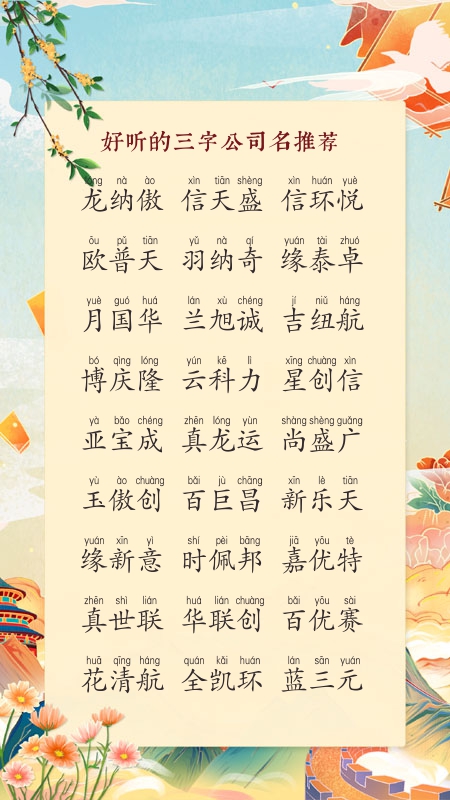 好听的三字公司名推荐
lóng nà ào xìn tiān shèng xìn huán yuè
龙纳傲 信天盛 信环悦
ōu pǔ tiān yǔ nà qí yuán tài zhuó
欧普天 羽纳奇 缘泰卓
yuè guó huá lán xù chéng jí niǔ háng
月国华 兰旭诚 吉纽航
bó qìng lóng yún kē lì xīng chuàng xìn
博庆隆 云科力 星创信
yà bǎo chéng zhēn lóng yùn shàng shèng guǎng
亚宝成 真龙运 尚盛广
yù ào chuàng bǎi jù chāng xīn lè tiān
玉傲创 百巨昌 新乐天
yuán xīn yì shí pèi bāng jiā yōu tè
缘新意 时佩邦 嘉优特
zhēn shì lián huá lián chuàng bǎi yōu sài
真世联 华联创 百优赛
huā qīng háng quán kǎi huán lán sān yuán
花清航 全凯环 蓝三元